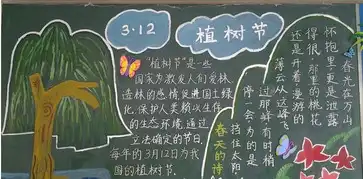 3·12
植树节
"植树节"是一些
国家为激发人们爱林、
造林的感情,促进国土绿
化,保护人类赖以生存
的生态环境,通过
立法确定的节日.
每年的3月12日为我
国的植树节.
春光在万山
怀抱里更是泄露
得很,那里的桃花
还是开着漫游的
薄云从这峰飞
过那峰有时稍
停一会,为的是
挡住太阳
春天的诗